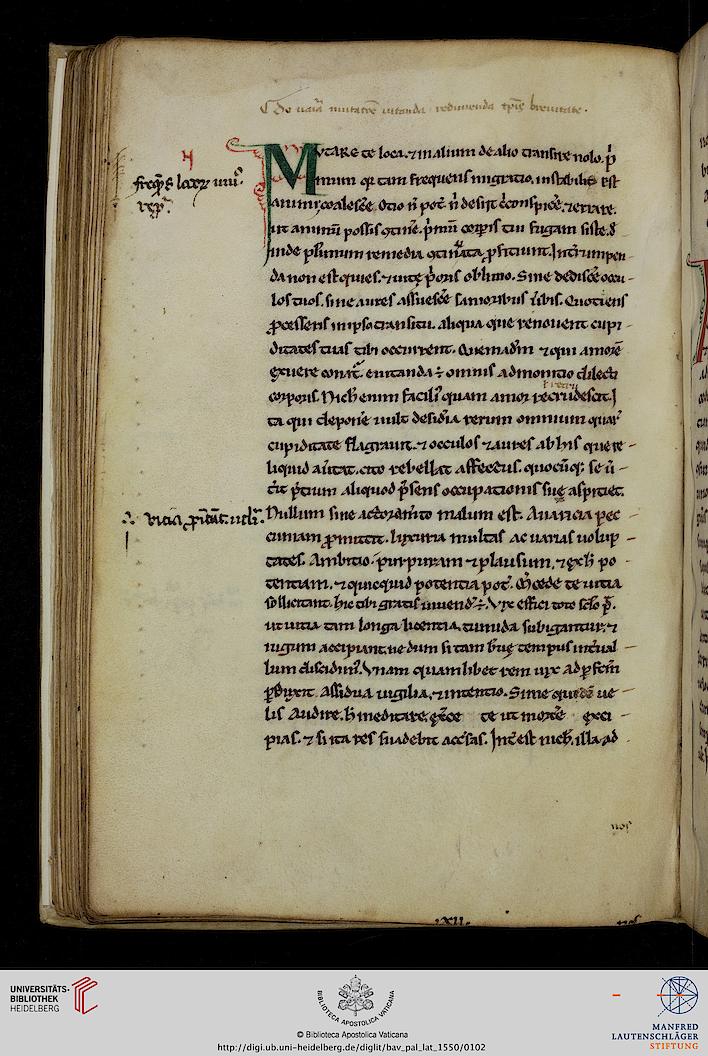 De varia mutatōe vitanda redimenda tp̄is breuitate.
MVTARE te loca. ⁊ in alium de alio transire nolo. p̄
mum qr tam frequens migratio. instabilis est
animi. coalesce͛ Otio n̄ pot̄. n̄ desiit c̄conspice͛. ⁊ errare.
ut animū possis 9tine͛. p̄mū corporis tui fugam siste. d̄
inde plurimum remedia 9tinuata proficiunt. Int̄rumpen
da non est quies. ⁊ uitę p̄oris obliuio. Sine dedisce͛ ocu
los tuos. sine aures assuesce͛ sanioribus u̅bis. Quotiens
processeris in ipso transitu. aliqua que renouent cupi
ditates tuas tibi occurrent. Quemadm̄ ⁊ qui amorē
exuere conat̄. euitanda ÷ omnis admonitio dilecti
corporis. Nich̄ enim facili᾽ quam amor recrudescit. I
ta qui deponere uult desid̄ia rerum omnium quar᾽
cupiditate flagrauit. ⁊ occulos ⁊ aures ab his que re
liquid au̅tat. cito rebellat affectus. quocūq; se u̅
t̄it p̄tium aliquod p̄sens occupationis suę aspiciet.
Nullum sine auctoram̄to malum est. Auaricia pec
cuniam promittit. luxuria multas ac uarias uolup
tates. Ambitio. purpuram ⁊ plausum. ⁊ ex h̄ po
tentiam. ⁊ quicquid potentia pot̄. Mcede te uitia
sollicitant. hic tibi gratis uiuend̄ ÷. Vix effici toto sclo p̄.
ut uitia tam longa licentia tumida subigantur. ⁊
iugum accipiant. ne dum si tam breue tempus int̄ual
lum discidim᾽. Vnam quamlibet rem uix ad perfctm̄
perduxit assidua uigilia. ⁊ intentio. Si me quidē ue
lis audire. h̄ meditare. exe͛ce te ut mortē exci
pias. ⁊ si ita res suadebit acc̄sas. Int̄est nich̄. illa ad
freqn̄s locoꝝ
uicia
nos
.XII.
UNIVERSITÄTS-
BIBLIOTHEK
HEIDELBERG
BIBLIOTECA APOSTOLICA VATICANA
© Biblioteca Apostolica Vaticana
http://digi.ub.uni-heidelberg.de/diglit/bav_pal_lat_1550/0102
MANFRED
LAUTENSCHLÄGER
STIFTUNG